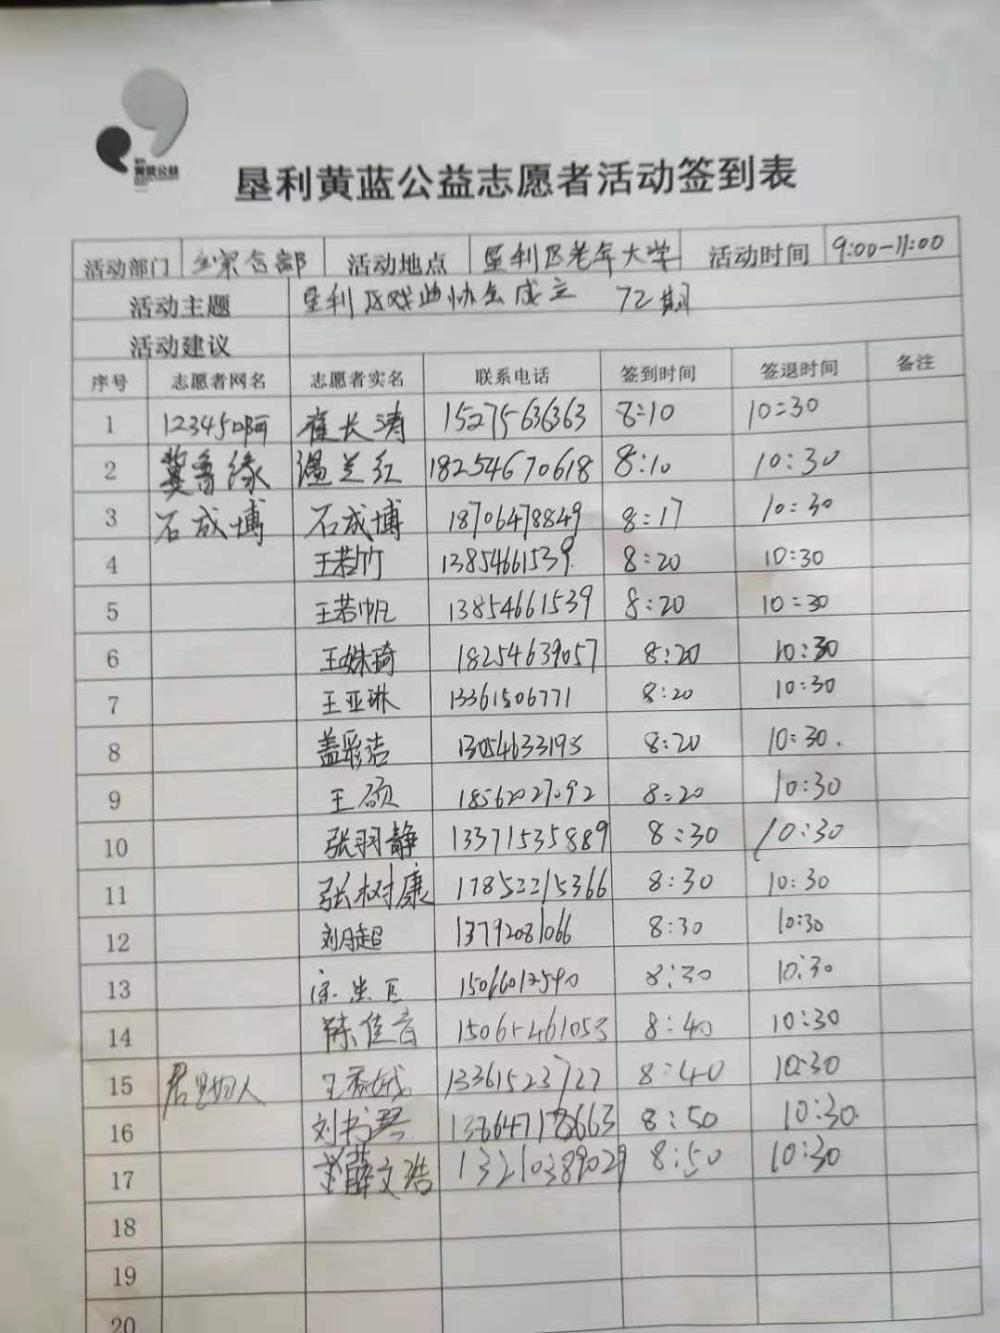 黄蓝公益
垦利黄蓝公益志愿者活动签到表
活动部门 综合部 活动地点 垦利区老年大学 活动时间 9:00-11:00
活动主题 垦利区戏曲协会成立 72期
活动建议
序号 志愿者网名 志愿者实名 联系电话 签到时间 签退时间 备注
1 12345啊 崔长涛 15275636363 8:10 10:30
2 冀鲁缘 温兰红 18254670618 8:10 10:30
3 石成博 石成博 18706478849 8:17 10:30
4 王若竹 13854661539 8:20 10:30
5 王若帆 13854661539 8:20 10:30
6 王姝琦 18254639057 8:20 10:30
7 王亚琳 13361506771 8:20 10:30
8 盖彩洁 13054633193 8:20 10:30.
9 王硕 18562027092 8:20 10:30
10 张羽静 13371535889 8:30 10:30
11 张树康 17852215366 8:30 10:30
12 刘月超 13792081066 8:30 10:30
13 15066012590 8:30 10:30
14 陈佳音 15065461053 8:40 10:30
15 王 13361523727 8:40 10:30
16 刘书琴 8:50 10:30
17 薛文浩 13210389029 8:50 10:30
18
19
20